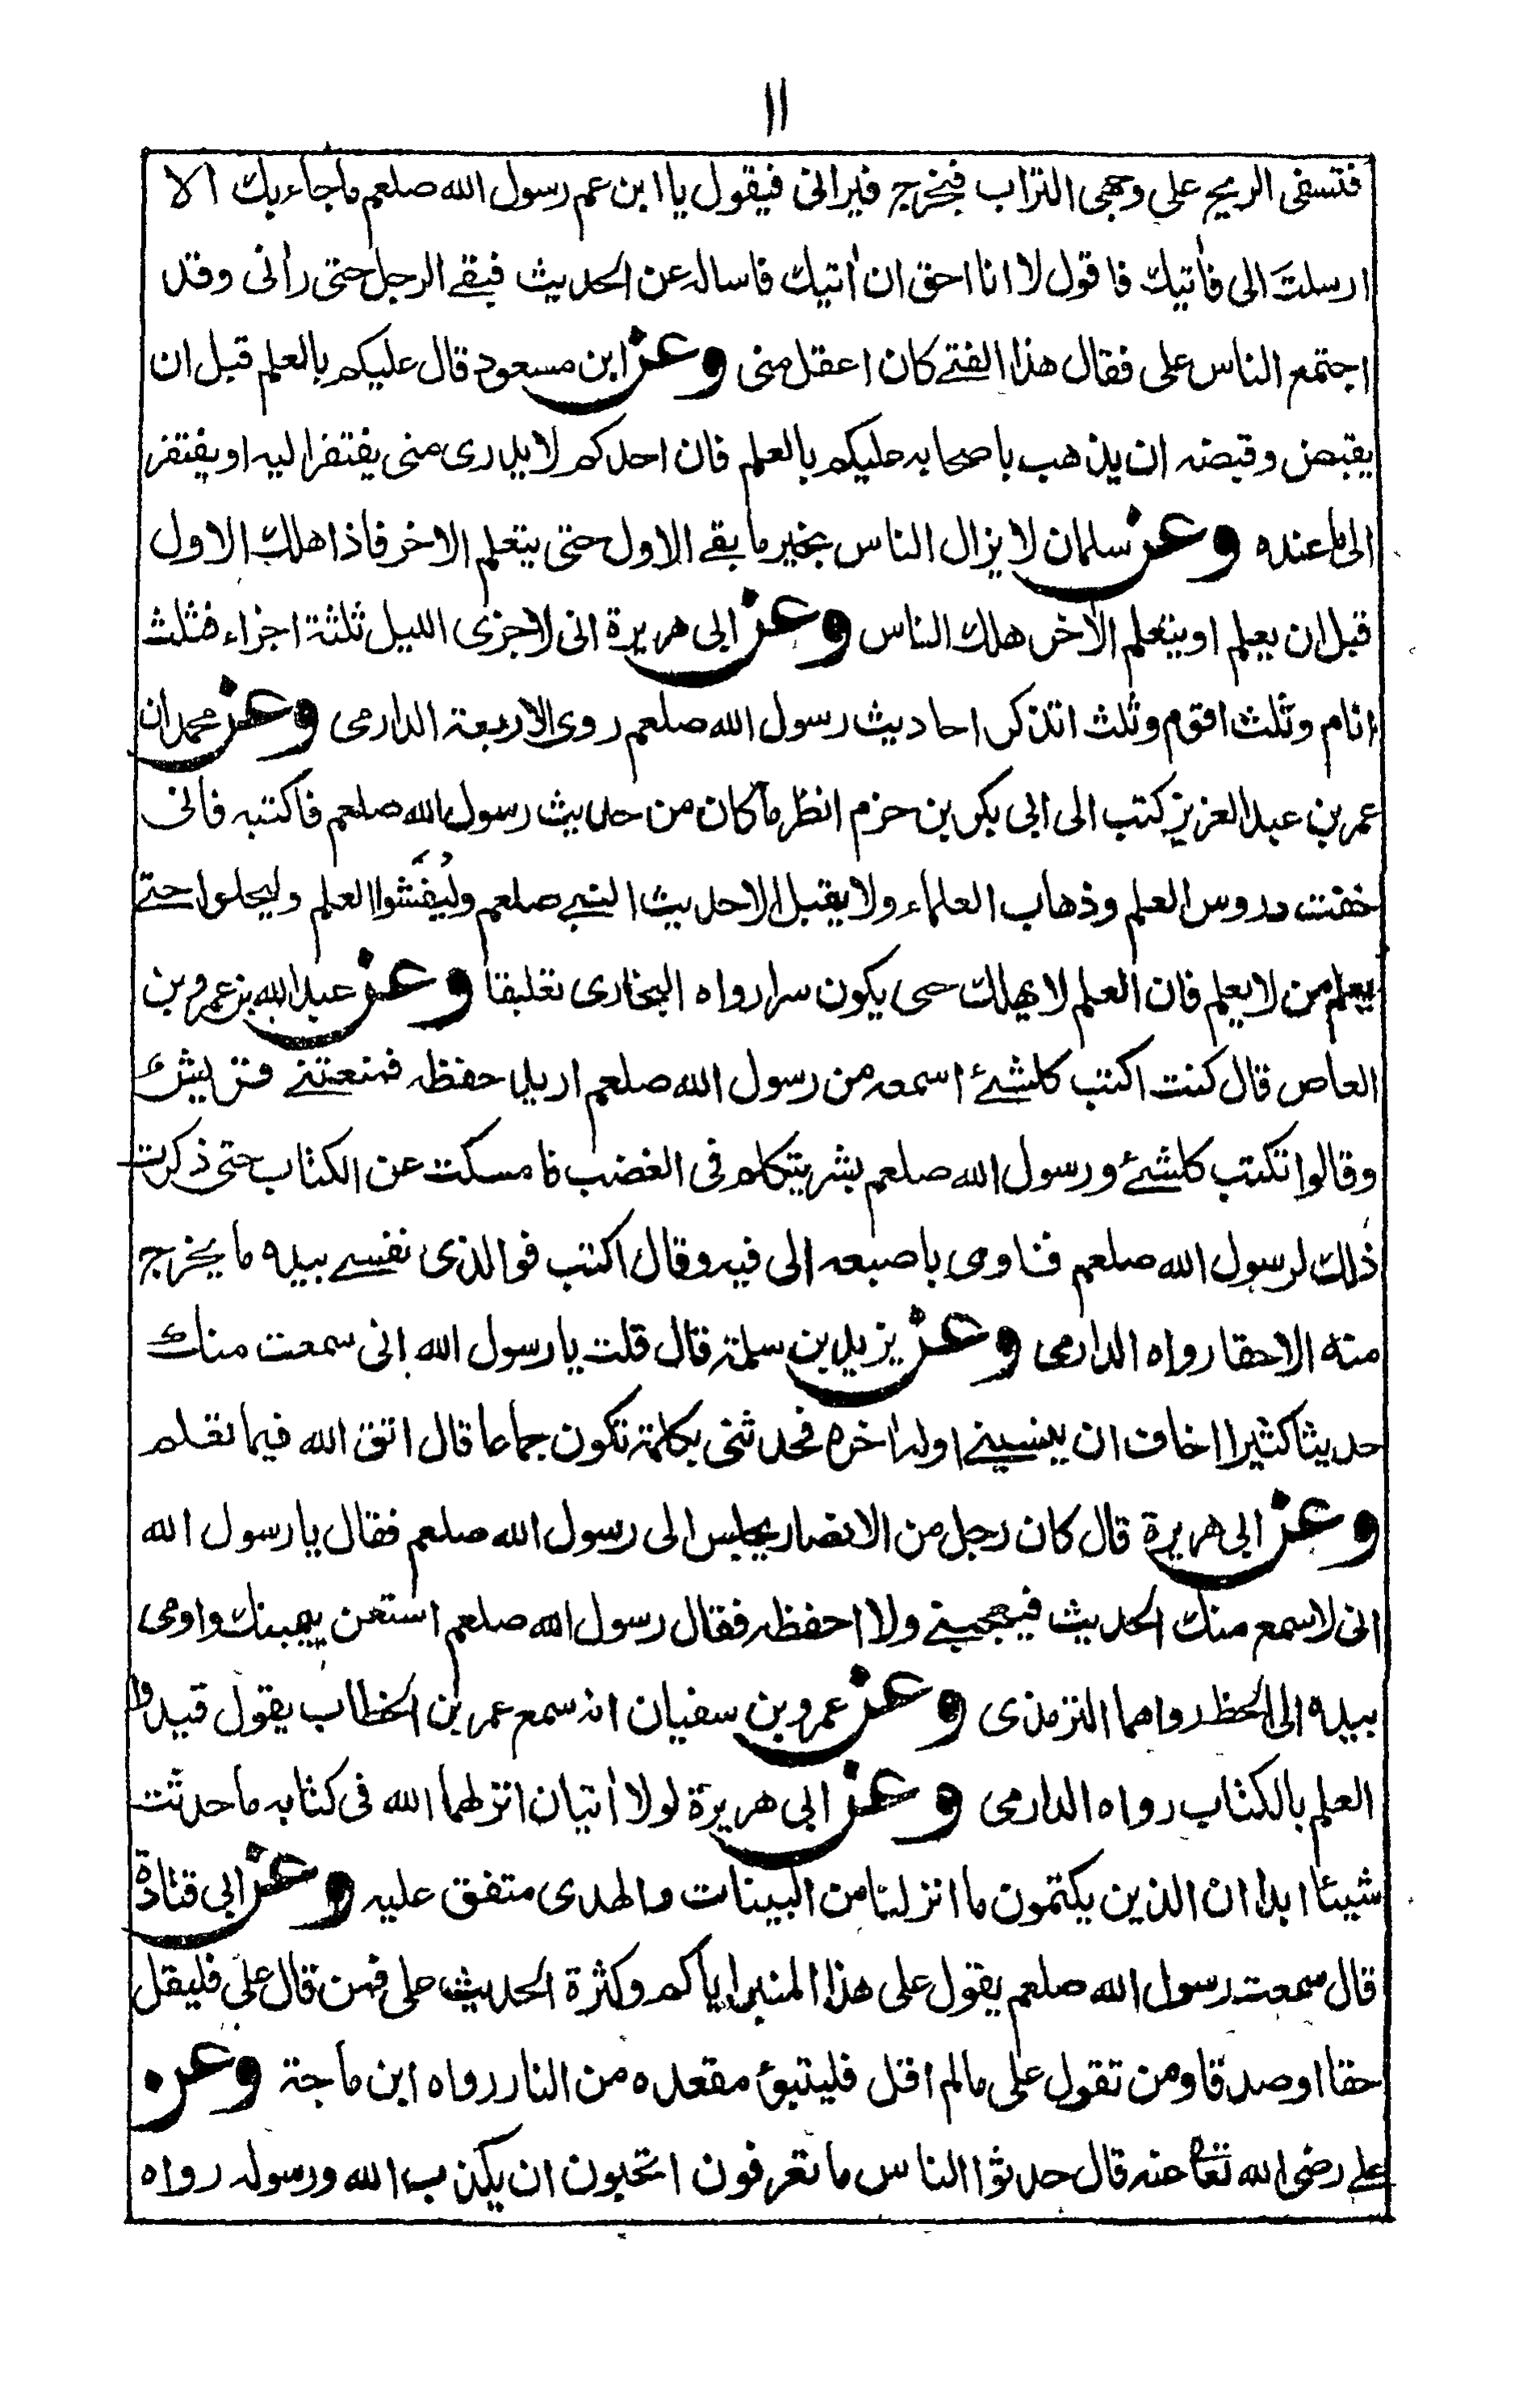 ١١
فتسفى الريح على وجهى التراب فيخرج فيرانى فيقول يا ابن عم رسول الله صلعم ما جاء بك الا
ارسلتَ الى فأتيك فاقول لا انا احق ان أتيك فاساله عن الحديث فبقے الرجل حتى رأنى وقد
اجتمع الناس على فقال هذا الفتے كان اعقل منى وعن ابن مسعود قال عليكم بالعلم قبل ان
يقبض وقبضه ان يذهب باصحابه عليكم بالعلم فان احدكم لا يدرى متى يفتقر اليه او يفتقر
الى ما عنده وعن سلمان لا يزال الناس بخير ما بقے الاول حتى يتعلم الاخر فاذا هلك الاول
قبل ان يعلم او يتعلم الأخر هلك الناس وعن ابى هريرة انى لاجزى الليل ثلثة اجزاء فثلث
انام وثلث اقوم وثلث اتذكر احاديث رسول الله صلعم روى الاربعة الدارمى وعن محمد ان
عمر بن عبد العزيز كتب الى ابى بكر بن حزم انظر ما كان من حديث رسول الله صلعم فاكتبه فانى
خفت دروس العلم وذهاب العلماء ولا يقبل الا حديث النبے صلعم وليُفشوا العلم وليجلسوا حتے
يعلم من لا يعلم فان العلم لا يهلك حتى يكون سرا رواه البخارى تعليقا وعن عبد الله بن عمرو بن
العاص قال كنت اكتب كلشئ اسمعه من رسول الله صلعم اريد حفظه فمنعتنے قريش
وقالوا تكتب كلشئ ورسول الله صلعم بشر يتكلم فى الغضب فامسكت عن الكتاب حتى ذكرت
ذلك لرسول الله صلعم فاومى باصبعه الى فيه وقال اكتب فوالذى نفسے بيده ما يخرج
منه الا حقا رواه الدارمى وعن يزيد بن سلمة قال قلت يا رسول الله انى سمعت منك
حديثا كثيرا اخاف ان ينسينے اوله اخره فحدثنى بكلمة تكون جماعا قال اتق الله فيما تعلم
وعن ابى هريرة قال كان رجل من الانصار يجلس الى رسول الله صلعم فقال يا رسول الله
انى لاسمع منك الحديث فيعجبنے ولا احفظه فقال رسول الله صلعم استعن بيمينك واومى
بيده الى الخط رواهما الترمذى وعن عمرو بن سفيان انه سمع عمر بن الخطاب يقول قيدوا
العلم بالكتاب رواه الدارمى وعن ابى هريرة لولا أيتان انزلهما الله فى كتابه ما حدثت
شيئا ابدا ان الذين يكتمون ما انزلنا من البينات والهدى متفق عليه وعن ابى قتادة
قال سمعت رسول الله صلعم يقول على هذا المنبر اياكم وكثرة الحديث على فمن قال على فليقل
حقا او صدقا ومن تقول على مالم اقل فليتبوئ مقعده من النار رواه ابن ماجة وعن
علے رضى الله تعا عنه قال حدثوا الناس ما تعرفون اتحبون ان يكذب الله ورسوله رواه